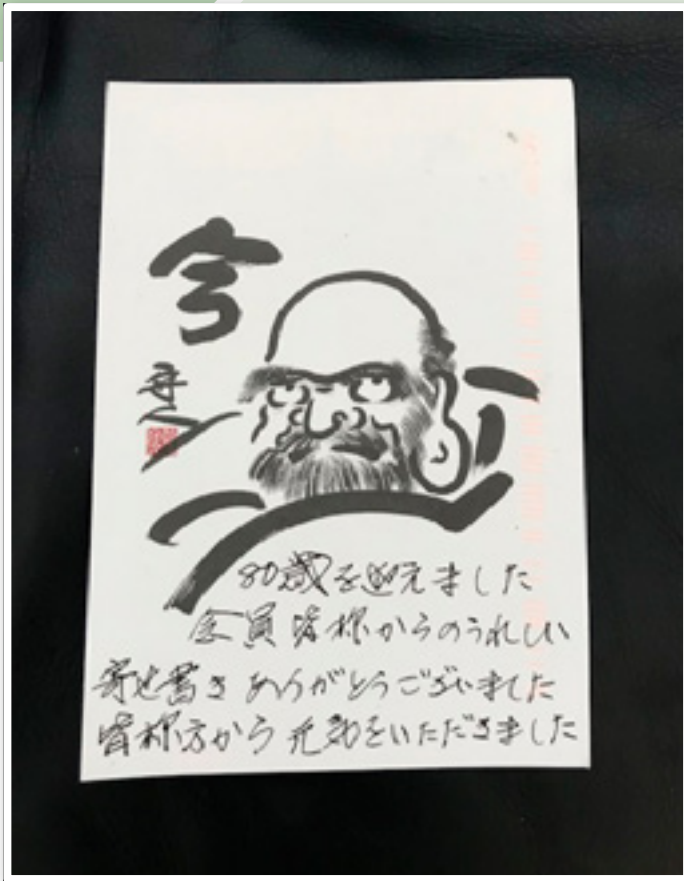 今
80歳を迎えました
会員皆様からのうれしい
寄せ書きありがとうございました
皆様方から元気をいただきました